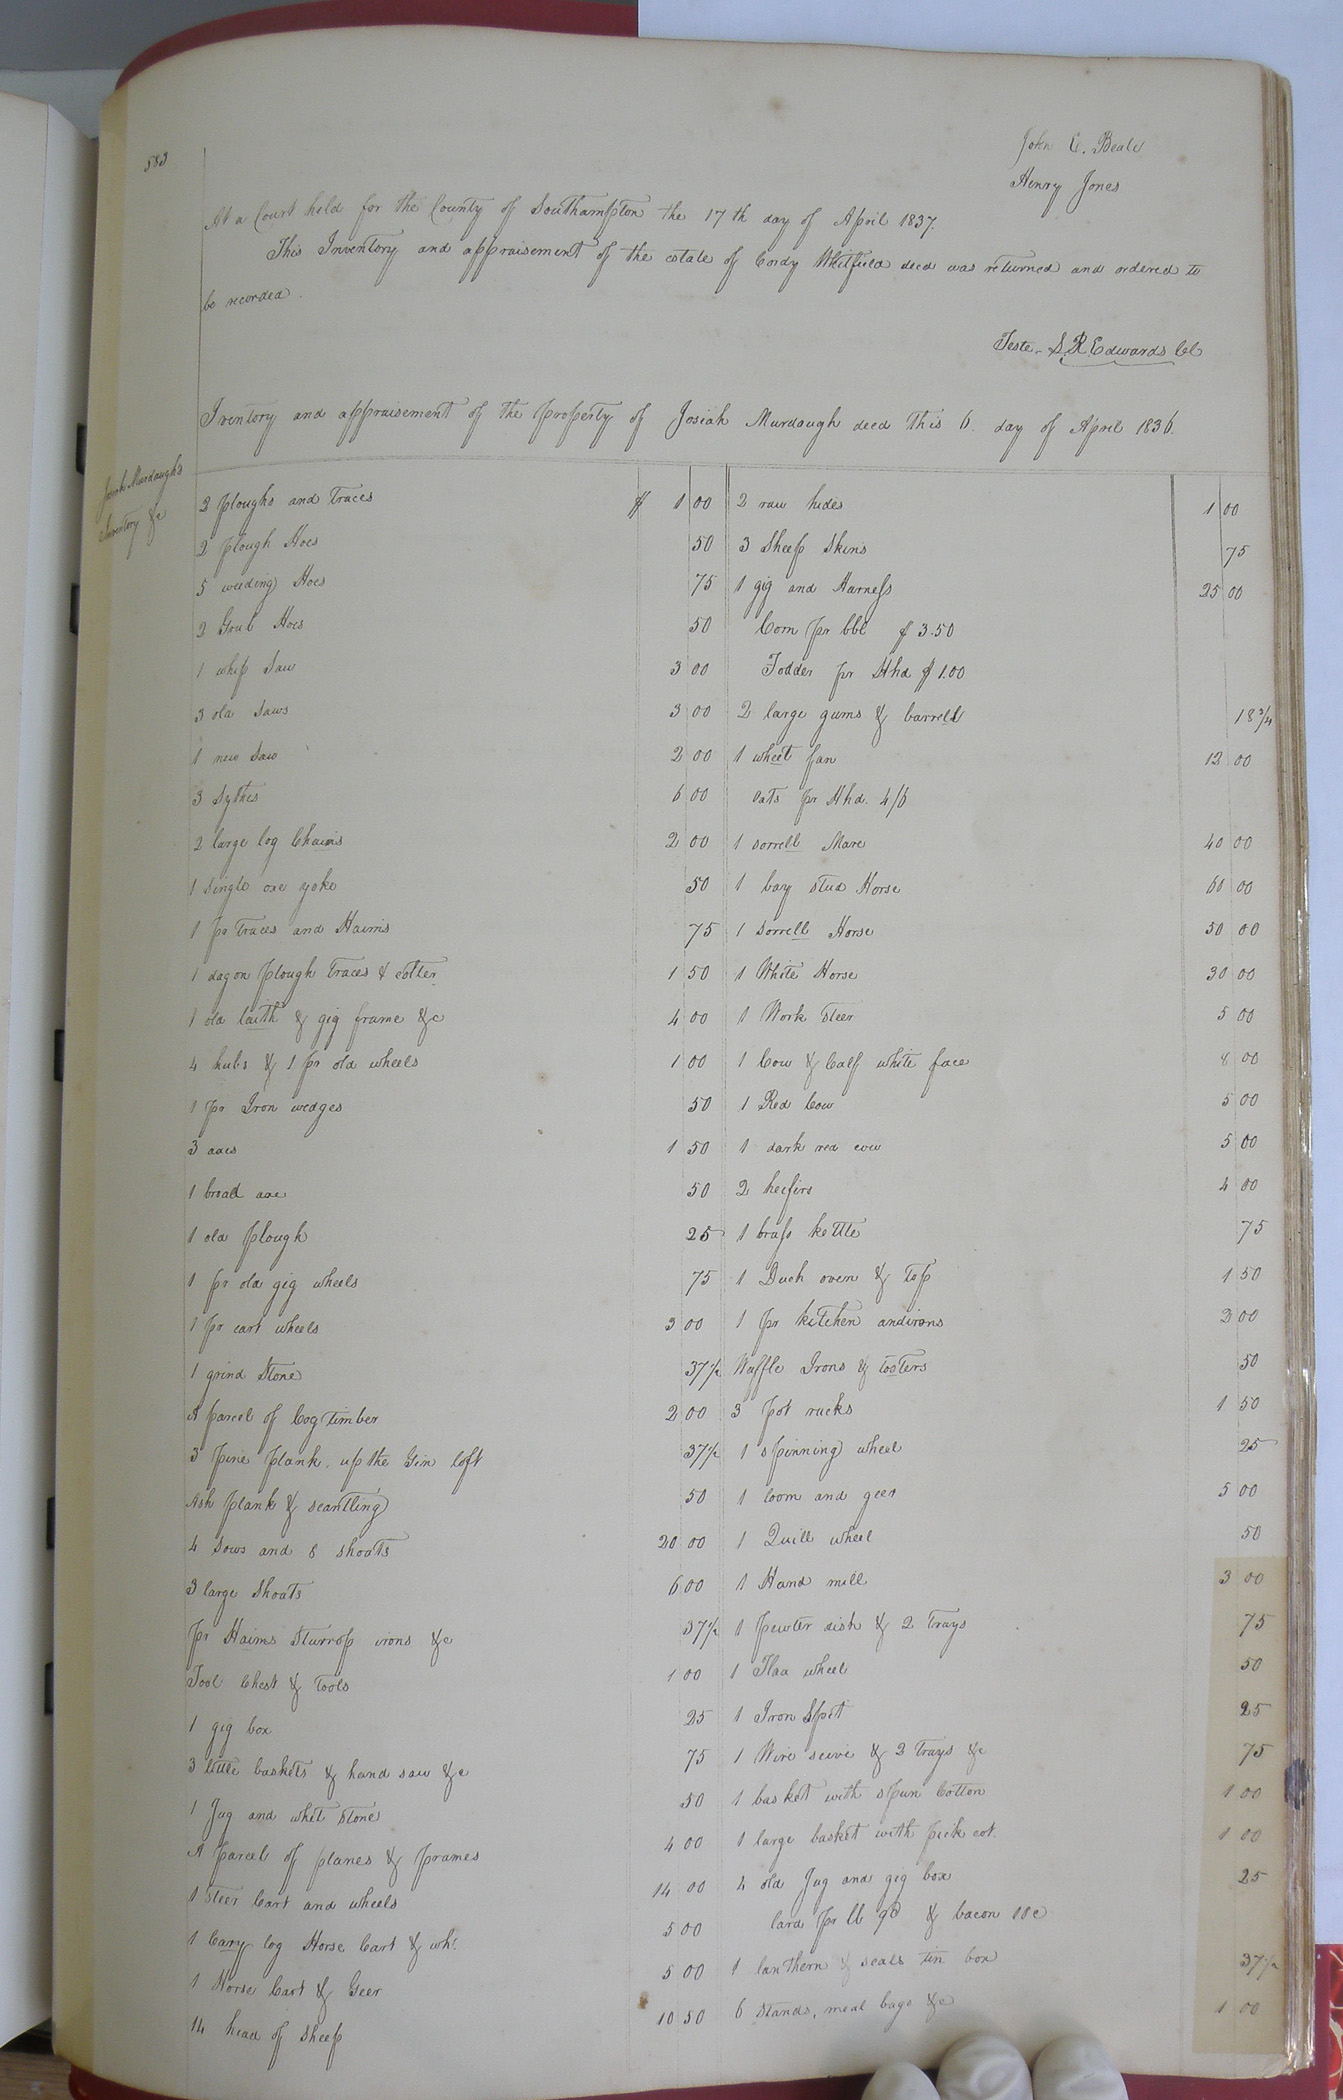 583
John C. Beale
Henry Jones
At a Court held for the County of Southampton the 17th day of April 1837.
This Inventory and appraisement of the estate of Cordy Whitfield decd was returned and ordered to
be recorded.
Teste. S.R Edwards Cl
Inventory and appraisement of the property of Josiah Murdaugh decd this 6 day of April 1836.
Josiah Murdaugh's
Inventory &c
2 ploughs and traces $ 1 00
2 plough Hoes 50
5 weeding Hoes 75
2 Grub Hoes 50
1 whip saw 3 00
3 old saws 3 00
1 new saw 2 00
3 Sythes 6 00
2 large log Chains 2 00
1 single oxe yoke 50
1 pr traces and Haims 75
1 dagon plough traces & cotter 1 50
1 old laith & gig frame &c 4 00
4 hubs & 1 pr old wheels 1 00
1 pr Iron wedges 50
3 axes 1 50
1 broad axe 50
1 old plough 25
1 pr old gig wheels 75
1 pr cart wheels 3 00
1 grind Stone 37½
A parcel of Cog timber 2 00
3 pine plank, up the Gin loft 37½
Ash plank & scantling 50
4 Sows and 8 shoats 20 00
3 large Shoats 6 00
pr Haims Sturrop irons &c 37½
Tool Chest & Tools 1 00
1 gig box 25
3 little baskets & hand saw &c 75
1 Jug and whet stone 50
A parcel of planes & frames 4 00
1 Steer Cart and wheels 14 00
1 Cary log Horse Cart & whs. 5 00
1 Horse Cart & Geer 5 00
14 head of sheep 10 50
2 raw hides 1 00
3 Sheep Skins 75
1 gig and Harness 25 00
Corn pr bbl $ 3.50
Fodder pr Hhd $ 1.00
2 large gums & barrell 18¾
1 wheet fan 12 00
oats pr Hhd. 4/6
1 sorrell Mare 40 00
1 bay stud Horse 60 00
1 Sorrell Horse 50 00
1 White Horse 30 00
1 Work Steer 5 00
1 Cow & Calf white face 8 00
1 Red Cow 5 00
1 dark red cow 5 00
2 heifirs 4 00
1 brass kettle 75
1 Duch oven & top 1 50
1 pr kitchen andirons 2 00
Waffle Irons & tosters 50
3 pot racks 1 50
1 spinning wheel 25
1 loom and geer 5 00
1 Quill wheel 50
1 Hand mill 3 00
1 pewter dish & 2 trays 75
1 Flax wheel 50
1 Iron Spit 25
1 Wire seive & 2 Trays &c 75
1 basket with spun Cotton 1 00
1 large basket with pick cot. 1 00
4 old Jug and gig box 25
lard pr lb 9d & bacon 10c
1 lanthern & seals tin box 37½
6 Stands, meal bags &c 1 00